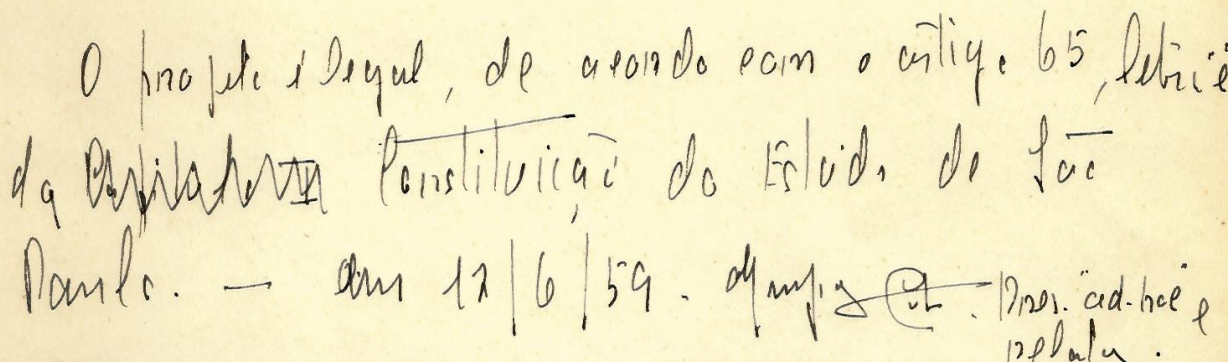 O projeto é legal, de acordo com o artigo 65, letra e
da Constituição do Estado de São
Paulo. — Em 12/6/59. Pres. ad-hoc e
relator.